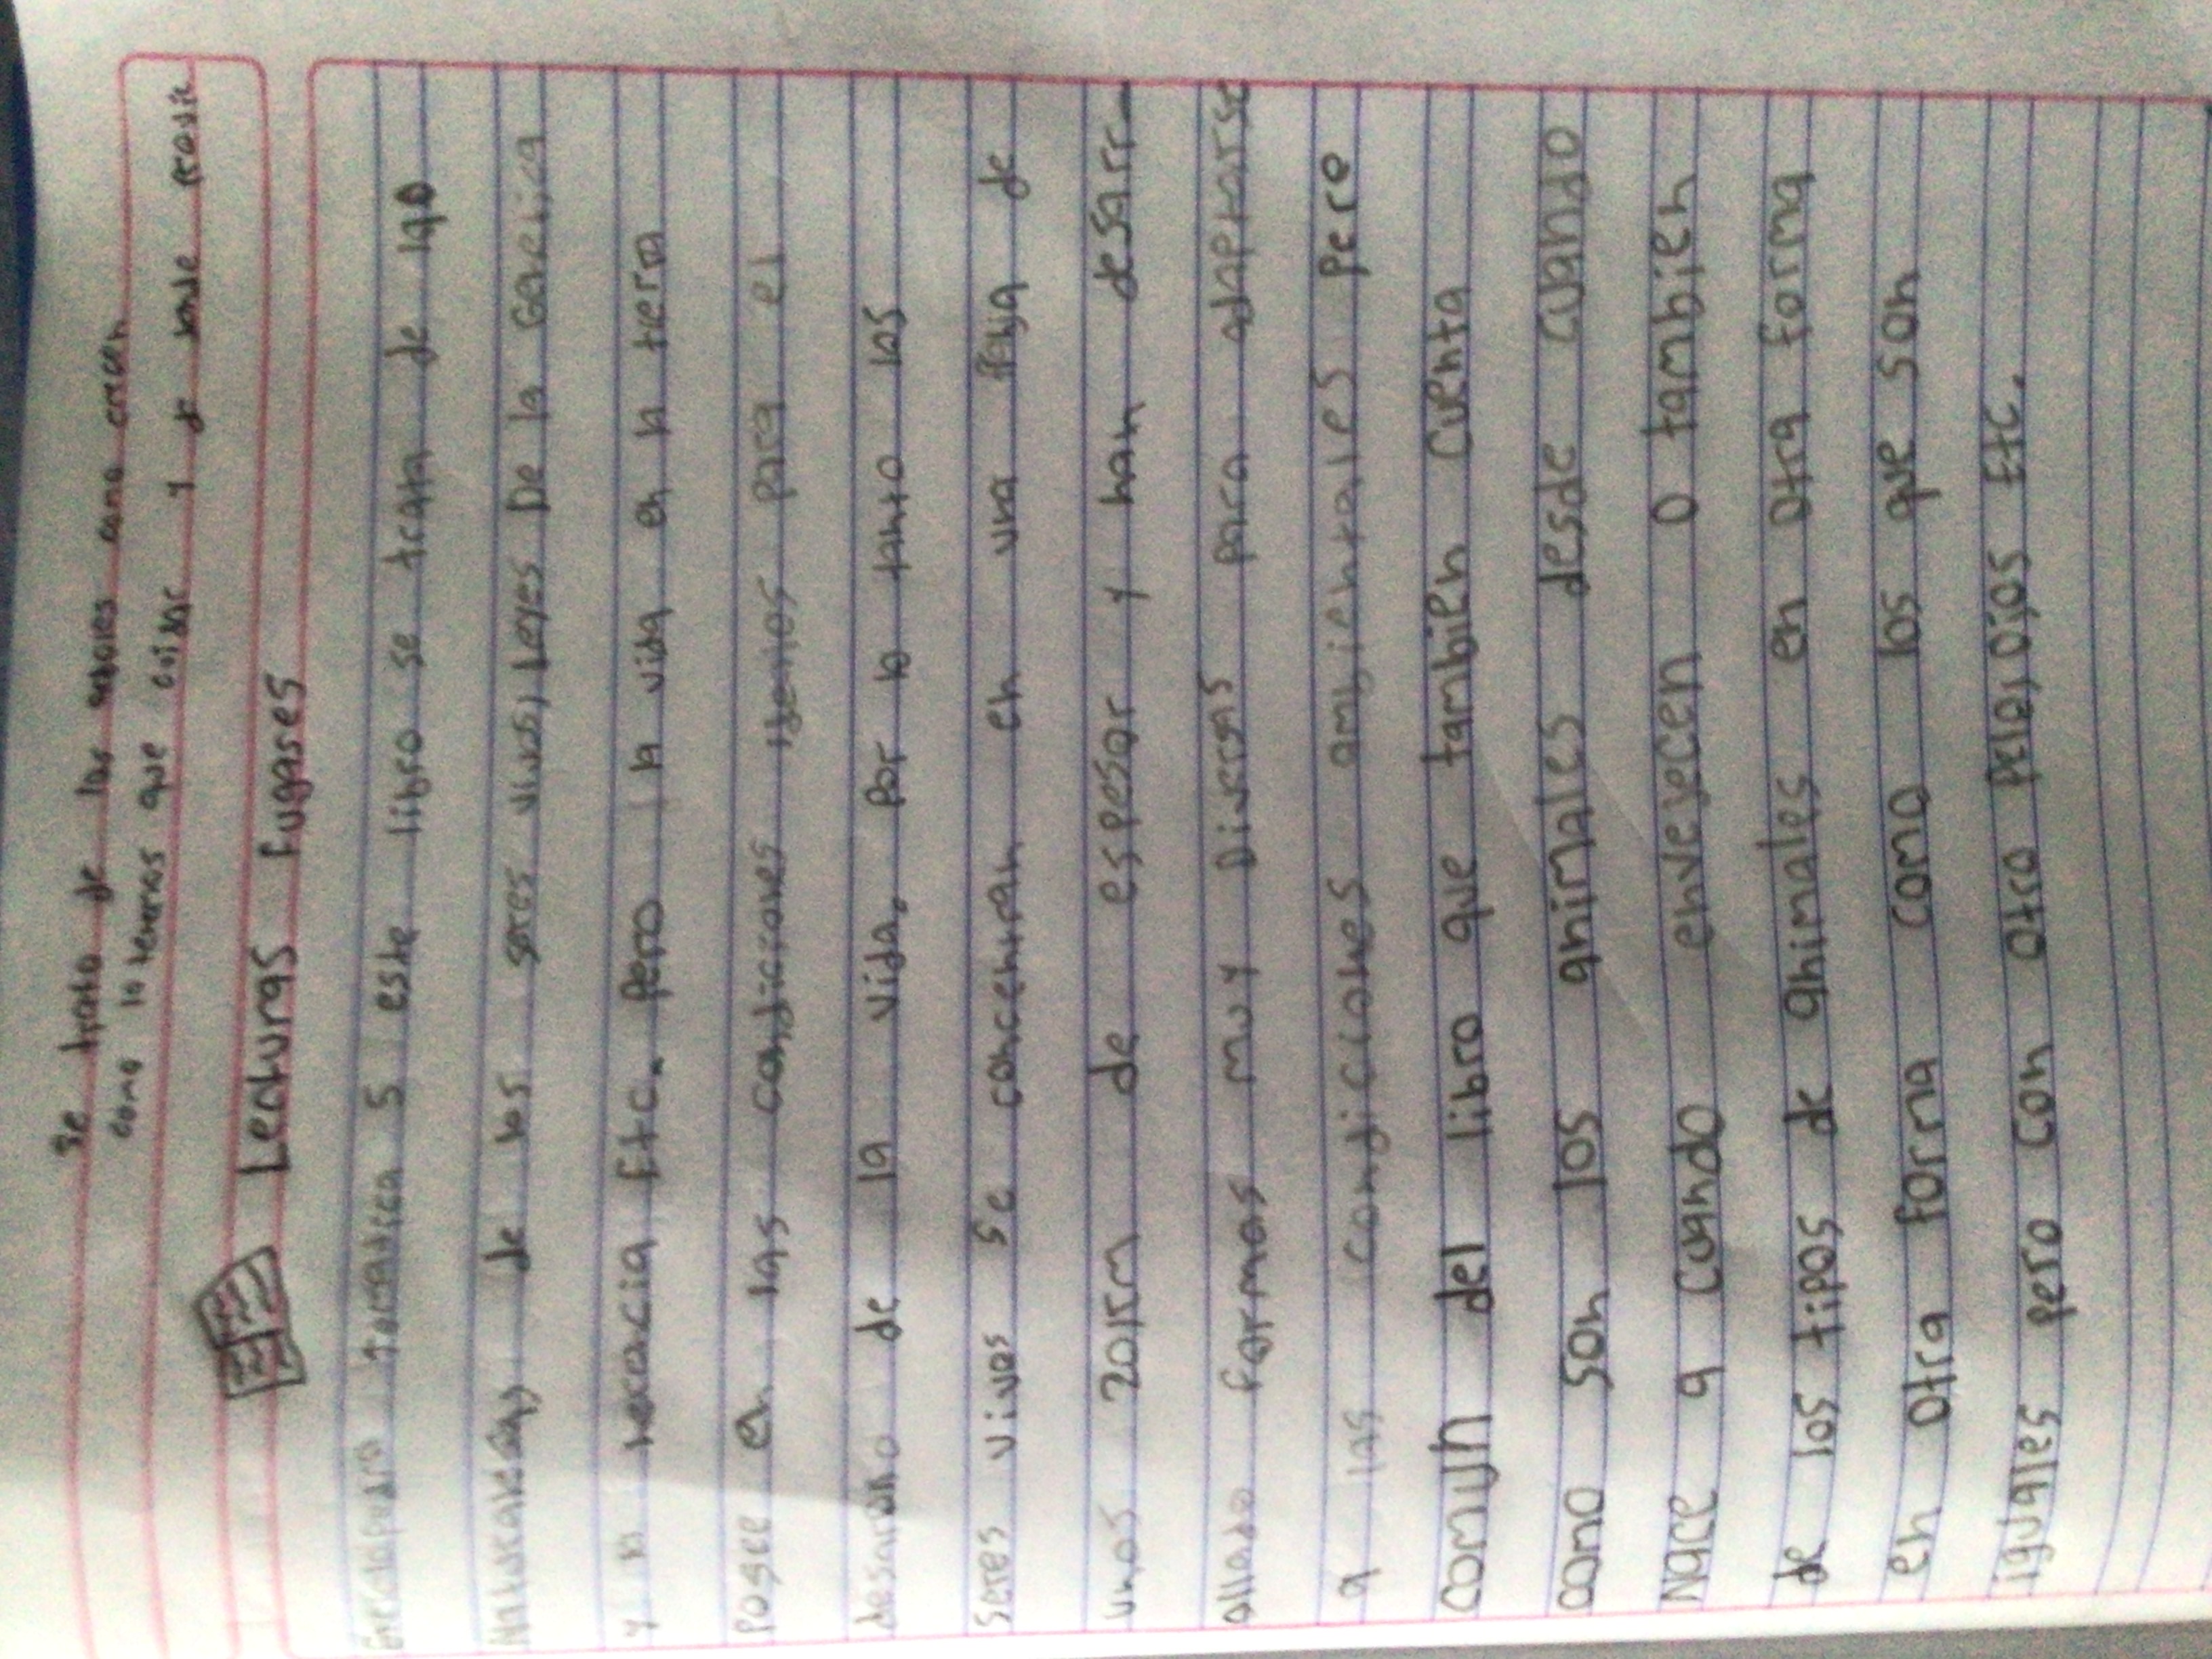 Se trata de los arboles como crecen
como lo tenemos que cuidar y de
Lecturas Fugases
5 este libro se trata de la
de los seres vivos, Leyes De la Genetica
y la Etc. Pero la vida en la tierra
Posee en las condiciones para el
desarrollo de la vida, Por lo tanto los
Seres vivos Se concentran en una de
unos 20km de espesor y han desarr-
ollado formas muy Diversas para adaptarse
a las condiciones ambientales Pero
comun del libro que tambien cuenta
como son los animales desde cuando
Nace a cuando envejecen o tambien
de los tipos de animales en otra forma
en otra forma como los que son
iguales pero con otro Pelo, Ojos Etc.